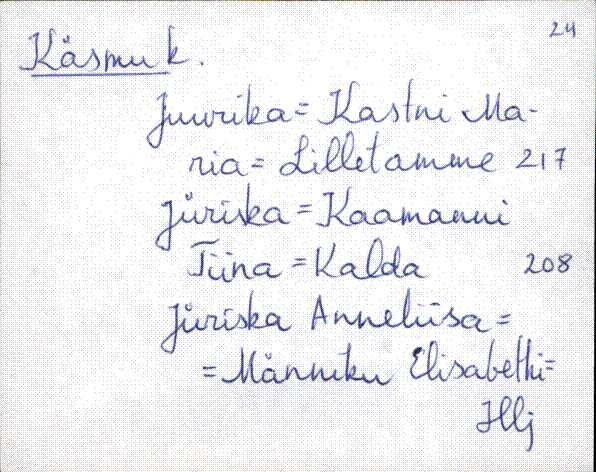 24
Käsmu k.
Juurika = Kastni Ma-
ria = Lilletamme 217
Jüriska = Kaamanni
Tiina = Kalda 208
Jüriska Anneliisa =
= Männiku Elisabethi=
Hlj